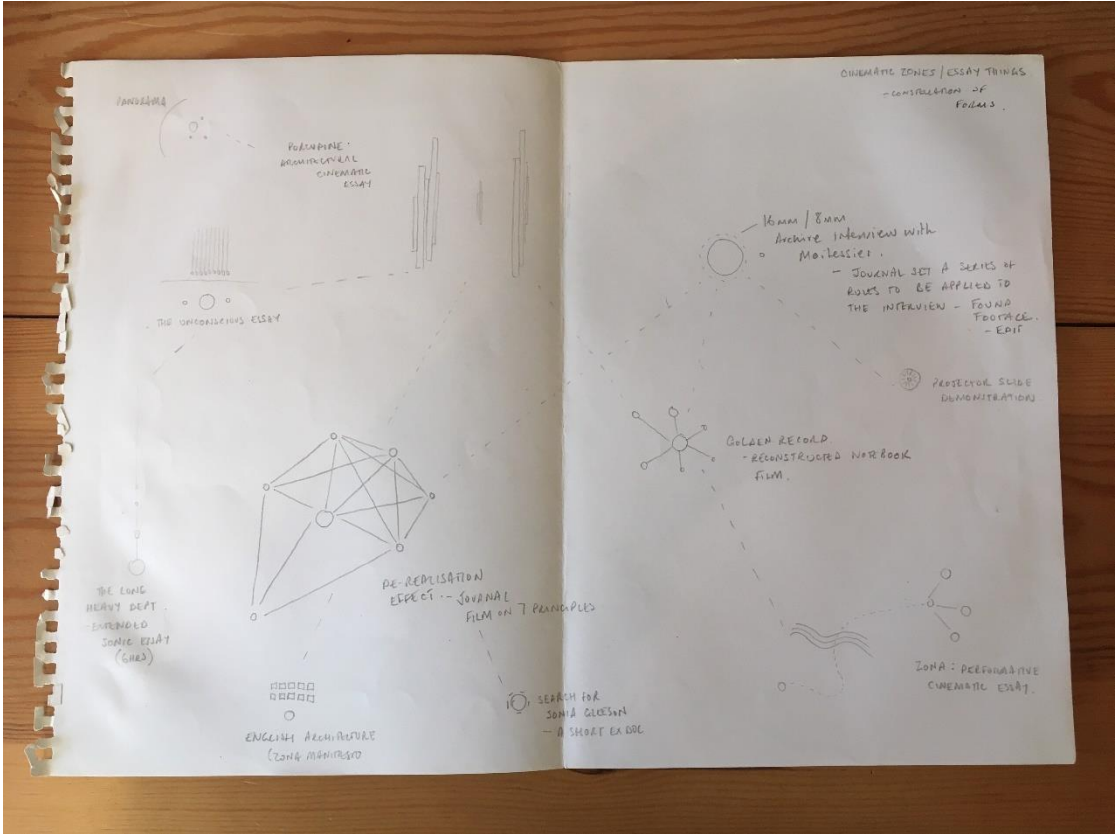 PANORAMA
PORCUPINE:
ARCHITECTURAL
CINEMATIC
ESSAY
THE UNCONSCIOUS ESSAY
THE LONG
HEAVY DEPT.
- EXTENDED
SONIC ESSAY
(6HRS)
DE-REALISATION
EFFECT - JOURNAL
FILM ON 7 PRINCIPLES
ENGLISH ARCHITECTURE
(ZONA MANIFESTO
SEARCH FOR
SONIA GLEESON
- A SHORT EX DOC
CINEMATIC ZONES / ESSAY THINGS
- CONSTELLATION OF
FORMS.
16mm / 8mm
Archive Interview with
- JOURNAL SET A SERIES OF
RULES TO BE APPLIED TO
THE INTERVIEW - FOUND
FOOTAGE.
- EDIT
PROJECTOR SLIDE
DEMONSTRATION
GOLDEN RECORD
- RECONSTRUCTED NOTEBOOK
FILM.
ZONA: PERFORMATIVE
CINEMATIC ESSAY.